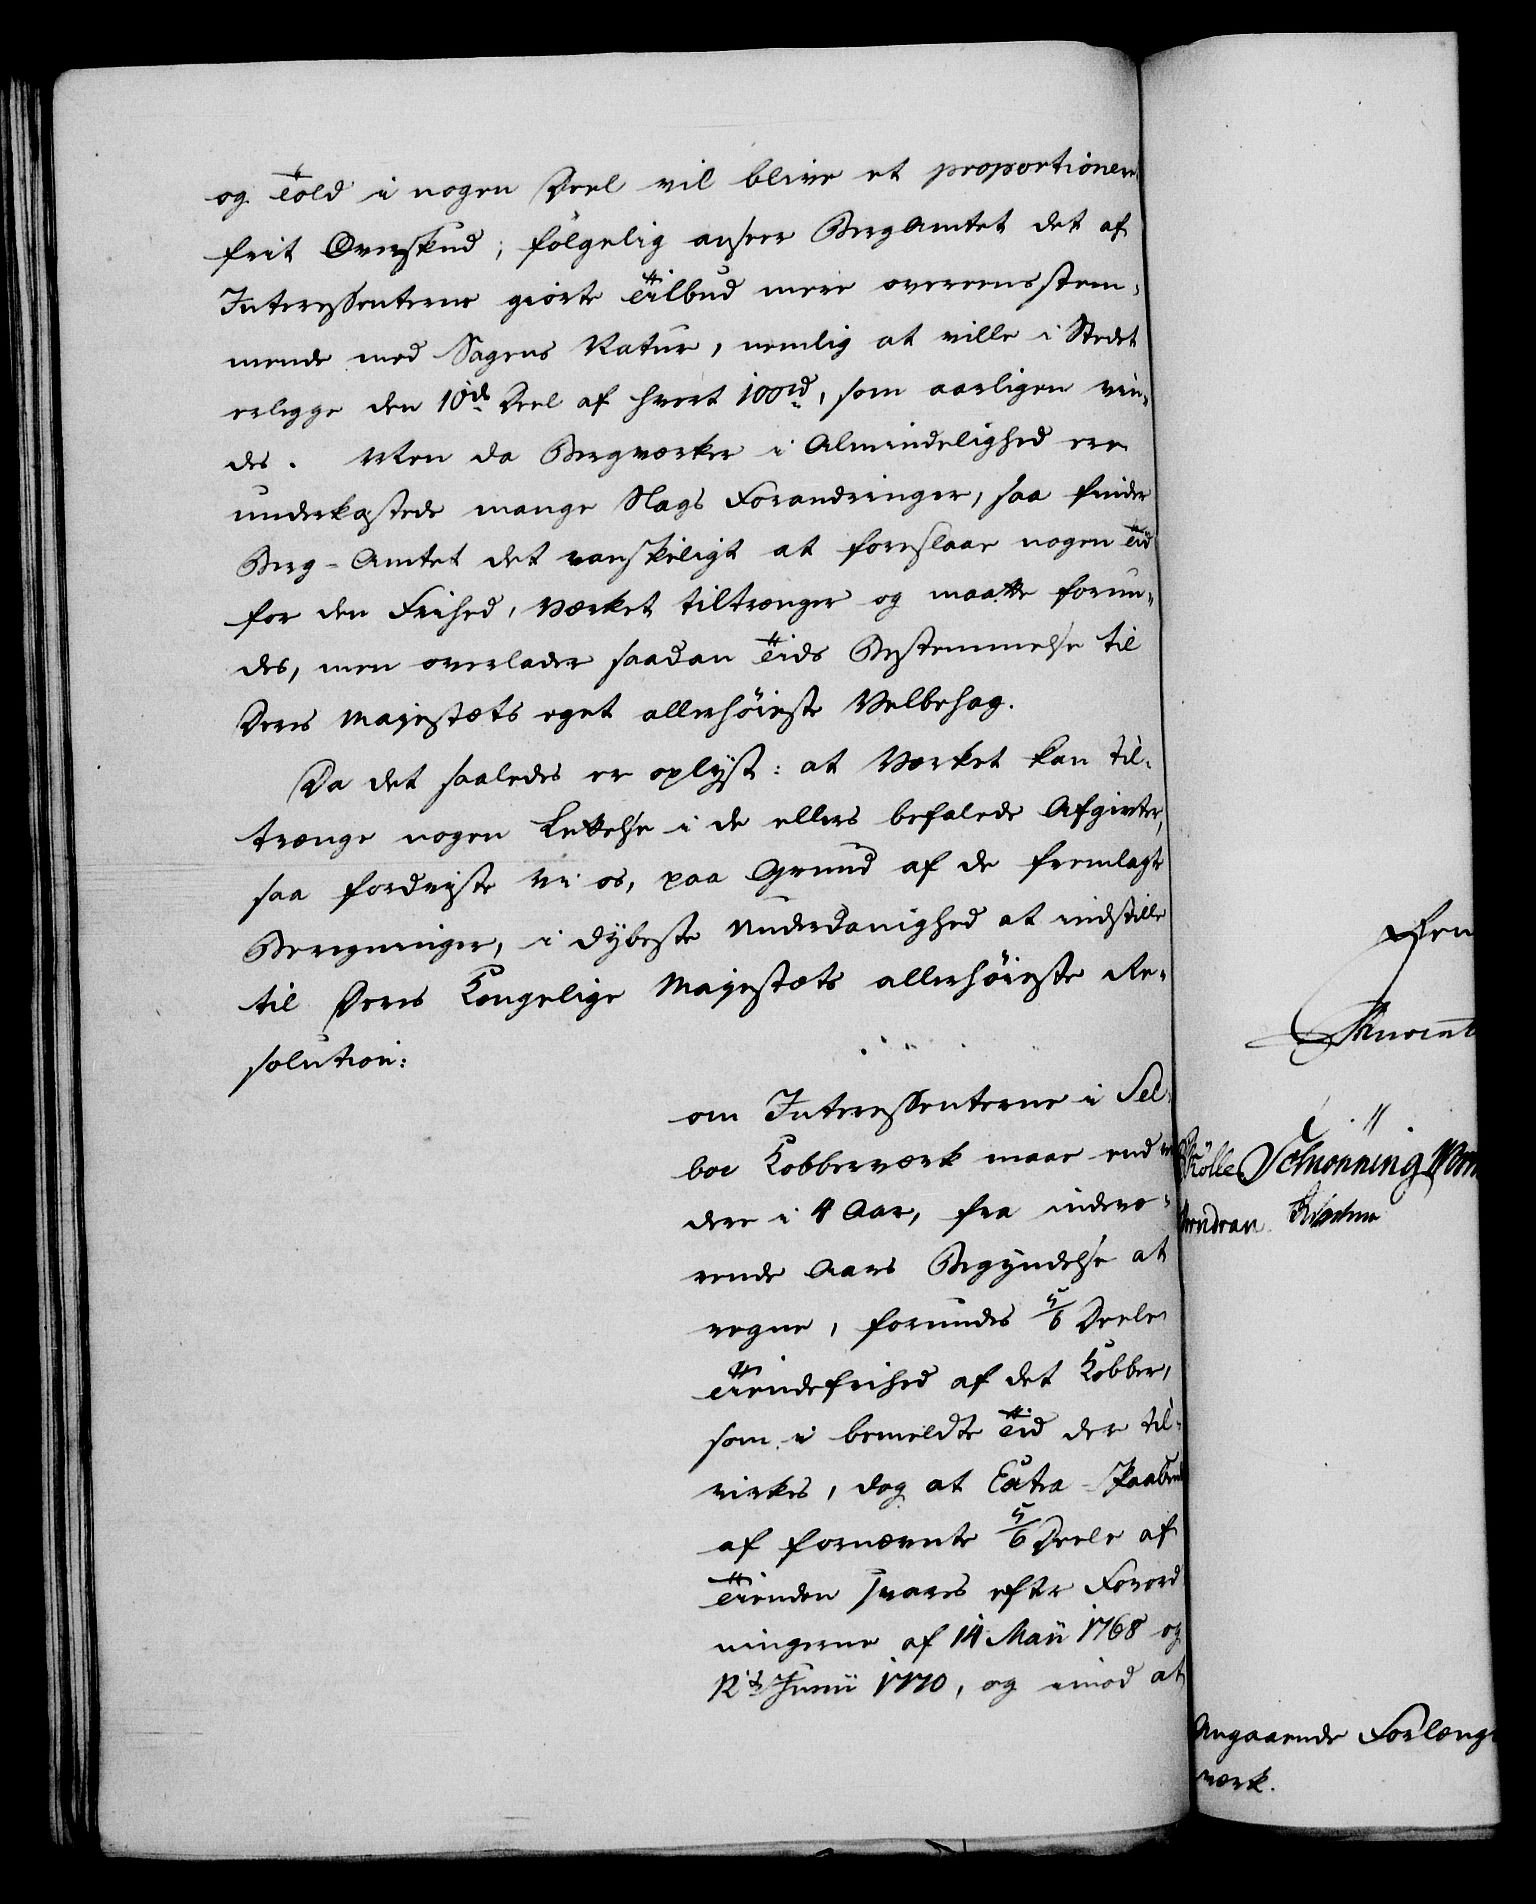 og Told i nogen Deel vil blive et proportionere
frit Overskud; følgelig anseer BergAmtet det af
Interessenterne giorte Tilbud mere overeensstem-
mende med Sagens Natur, nemlig at ville i Stedet
erlægge den 10de Deel af hvert 100rd, som aarligen vin-
des. Men da Bergværker i Almindelighed ere
underkastede mange Slags Forandringer, saa finder
Berg-Amtet det vanskeligt at foreslaae nogen Tid
for den Frihed, Værket tiltrænger og maatte forun-
des, men overlader saadan Tids Bestemmelse til
Deres Majestæts eget allerhøieste Velbehag.
Da det saaledes er oplyst: at Værket kan til-
trænge nogen Lettelse i de ellers befalede Afgivter,
saa fordriste vi os, paa Grund af de fremlagte
Beregninger, i dybeste Underdanighed at indstille
til Deres Kongelige Majestæts allerhøieste Re-
solution:
om Interessenterne i Sel-
boe Kobberværk maae end vi-
dere i 4 Aar, fra indevæ-
rende Aars Begyndelse at
regne, forundes 5/6 Deele
Tiendefrihed af det Kobber,
som i bemeldte Tid der til-
virkes, dog at Extra-Skatten
af fornævnte 5/6 Deele af
Tienden svares efter Forord
ningerne af 14 Maii 1768 og
12te Junii 1770, og imod at
Schønning
Angaaende Forlæng
værk.